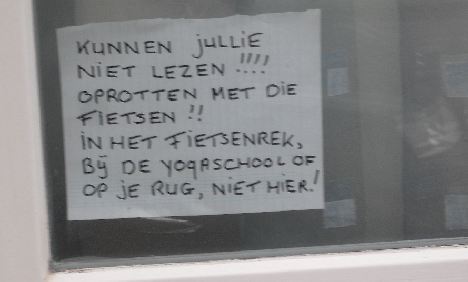 KUNNEN JULLIE
NIET LEZEN !!!!
OPROTTEN MET DIE
FIETSEN !!
IN HET FIETSENREK,
BIJ DE YOGASCHOOL OF
OP JE RUG, NIET HIER!